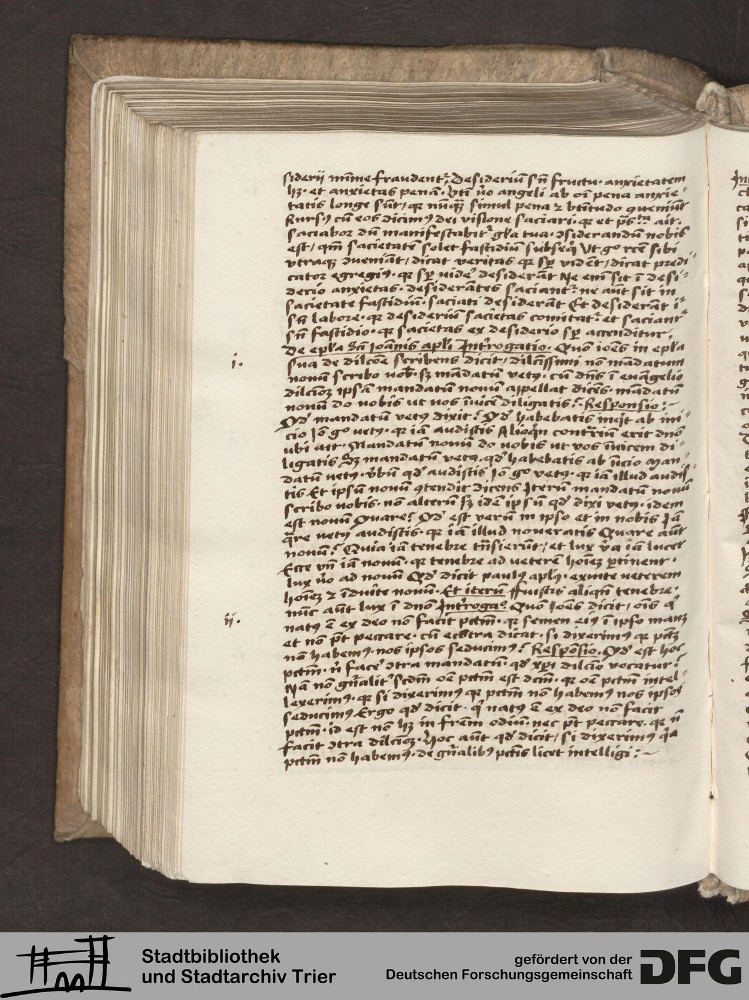 siderij mīme fraudent᷑. Desideriū sn̄ fructu. anxietatem
hʒ. et anxietas penā. Vti v̊o angeli ab oī pena anxie
tatis longe sūt, qꝛ nūq̄ʒ simul pena ⁊ btītudo queniūt
Rursꝰ cū eos dicimꝰ dei visione saciari. qꝛ et ps̄ᵗᵃ ait.
saciabor dū manifestabit᷑ gl̄a tua. ɔsiderandū nobis
est, qm̄ sacietatē solet fastidiū subseq̄ Ut g̊ rcē sibi
vtraqꝫ ɔueniāt, dicat veritas qꝛ sꝑ vidēt, dicat predi
cator egregiꝰ. qꝛ sꝑ vidē desiderāt Ne em̄ sit ī desi
derio anxietas. desiderātes saciant᷑. ne aūt sit in
sacietate fastidiū. saciati desiderāt Et desiderāt ī
sn̄ labore. qꝛ desideriū sacietas comitat᷑. et saciant᷑
sn̄ fastidio. qꝛ sacietas ex desiderio sꝑ accenditur.
De epl̄a sc̄i Ioānis apl̄i Int᷑rogatio. Quō ioēs in epl̄a
i.
sua de dilcōe scribens dicit, dilc̄issimi nō mandatum
nouū scribo vob̄. sʒ mādatū vetꝰ. cū dn̄s ī euāgelio
dilcōʒ ipsā mandatū nouū appellat dicēs. mādatū
nouū do vobis ut vos īuicē diligatis. Responsio:~
Qd̄ mandatū vetꝰ dixit? Qd̄ habebatis inq̄t ab ini
cio Iō g̊ vetꝰ. qꝛ iā audistis Alioqn̄ contr̄iū erit dn̄o
ubi ait. Mandatū nouū do vobis ut vos īuicem di
ligatis Sʒ mandatū vetꝰ. qd̄ habebatis ab īicio Man
datū vetꝰ. v̄bū qd̄ audistis Iō g̊ vetꝰ. qꝛ iā illud audis
tis Et ipsū nouū ɔtendit dicens Iterū mandatū nouū
scribo vobis. nō alterū sʒ idē ipsū qd̄ dixi vetꝰ. idem
est nouū Quare? Qd̄ est verū in ipso et in nobis Iā
q̄re vetꝰ audistis. qꝛ iā illud noueratis Quare aūt
nouū? Quia iā tenebre tn̄sierūt, et lux v̄a iā lucet
Ecce vn̄ iā nouū. qꝛ tenebre ad veterē hoīeʒ ꝑtinent.
lux v̊o ad nouū Qd̄ dicit paulꝰ aplꝰ. exuite veterem
hoīeʒ ⁊ īduite nouū. Et iterū ffuistis aliqn̄ tenebre.
nūc aūt lux ī dn̄o Int᷑rogaᵒ Quō Ioēs dicit, oīs qͥ
ij.
natꝰ ē ex deo nō facit pctm̄. qꝛ semen eiꝰ ī ipso manʒ
et nō pt̄ peccare. cū ecōtra dicat. si dixerimꝰ qꝛ pctʒ
nō habemꝰ. nos ipsos seducimꝰ? Responsio. Qd̄ est hoc
pctm̄. n̄ facē ɔtra mandatū. qd̄ xp̄i dilcīo vocatur?
Nā nō gn̄alit᷑ scdm̄ oē pctm̄ est dcm̄. qꝛ oē pctm̄ intel
lexerimꝰ. qꝛ si dixerimꝰ qꝛ pctm̄ nō habemꝰ nos ipsos
seducimꝰ. Ergo qd̄ dicit. qͥ natꝰ ē ex deo nō facit
pctm̄. id est nō hʒ in frēm odiū. nec pt̄ peccare. qꝛ n̄
facit ɔtra dilcōʒ. Hoc aūt qd̄ dicit, si dixerimꝰ qꝛ
pctm̄ nō habemꝰ. de gn̄alibꝰ pctīs licet intelligi:~
Stadtbibliothek
und Stadtarchiv Trier
gefördert von der
Deutschen Forschungsgemeinschaft
DFG